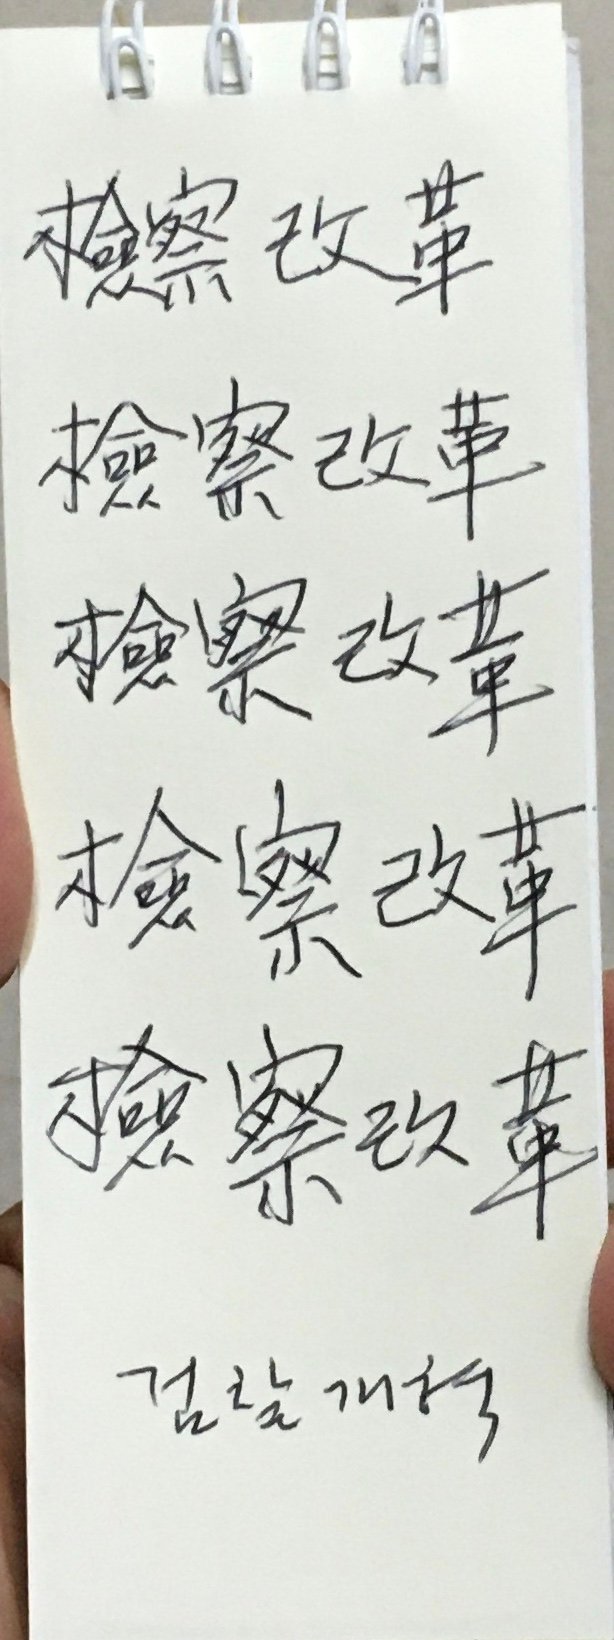 檢察 改革
檢察 改革
檢察 改革
檢察 改革
檢察 改革
검찰 개혁